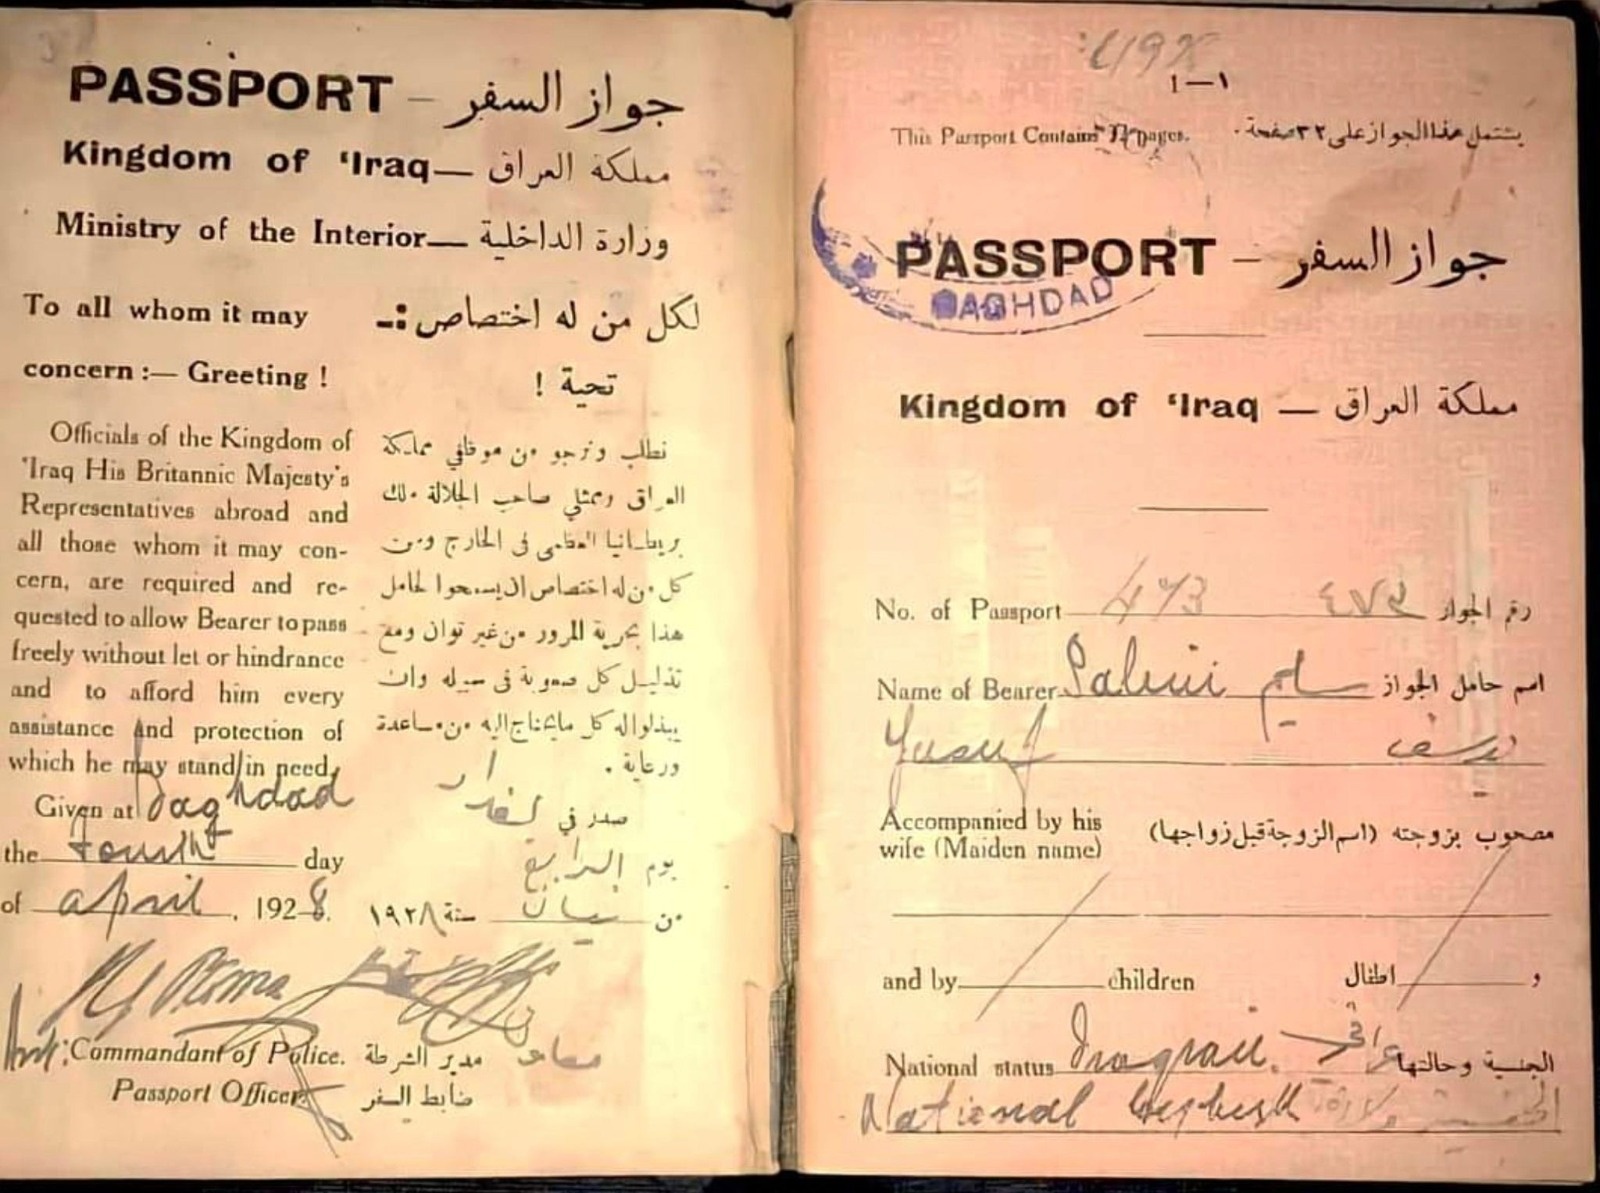 PASSPORT – جواز السفر
Kingdom of 'Iraq — مملكة العراق
Ministry of the Interior — وزارة الداخلية
To all whom it may
concern :— Greeting !
لكل من له اختصاص :-
تحية !
Officials of the Kingdom of
'Iraq His Britannic Majesty's
Representatives abroad and
all those whom it may con-
cern, are required and re-
quested to allow Bearer to pass
freely without let or hindrance
and to afford him every
assistance and protection of
which he may stand in need.
Given at Baghdad
the fourth day
of april . 1928.
نطلب ونرجو من موظفي مملكة
العراق وممثلي صاحب الجلالة ملك
بريطانيا العظمى في الخارج ومن
كل من له اختصاص ان يسمحوا لحامل
هذا بحرية المرور من غير توان ومع
تذليل كل صعوبة في سبيله وان
يبذلوا له كل ما يحتاج اليه من مساعدة
ورعاية .
صدر في بغداد
يوم الرابع
من نيسان سنة ١٩٢٨
Commandant of Police. مدير الشرطة معاون
Passport Officer. ضابط السفر
1—١
This Passport Contains pages. يشتمل هذا الجواز على ٣٢ صفحة .
PASSPORT – جواز السفر
BAGHDAD
Kingdom of 'Iraq — مملكة العراق
No. of Passport 473 ٤٧٣ رقم الجواز
Name of Bearer Salim سليم اسم حامل الجواز
Yusuf يوسف
Accompanied by his
wife (Maiden name)
مصحوب بزوجته (اسم الزوجة قبل زواجها)
and by children و اطفال
National status Iraqian. عراقي الجنسية وحالتها
National